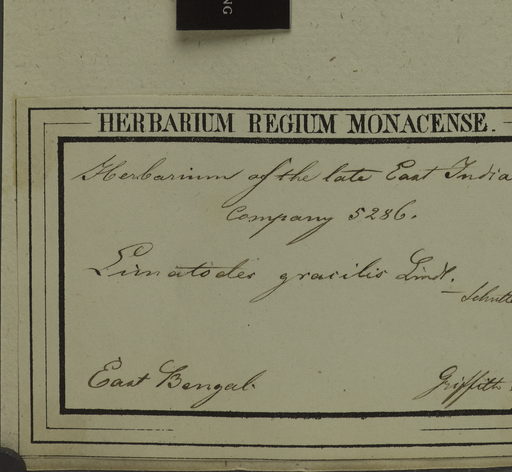 NG
HERBARIUM REGIUM MONACENSE.
Herbarium of the late East India
Company 5286.
Limatodes gracilis Lindl.
East Bengal.
Griffith